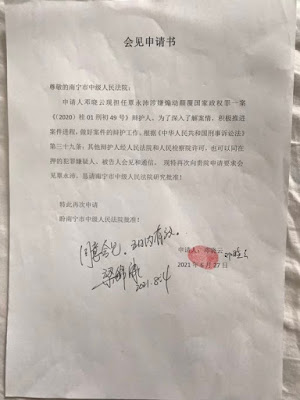 会见申请书
尊敬的南宁市中级人民法院:
申请人邓晓云现担任覃永沛涉嫌煽动颠覆国家政权罪一案
(〔2020〕桂01刑初49号)辩护人,为了深入了解案情,积极推进
案件进程,做好案件的辩护工作,根据《中华人民共和国刑事诉讼法》
第三十九条:其他辩护人经人民法院和人民检察院许可,也可以同在
押的犯罪嫌疑人、被告人会见和通信。现特再次向贵院申请要求会
见覃永沛,恳请南宁市中级人民法院研究批准!
特此再次申请
盼南宁市中级人民法院批准!
同意会见,三日内有效。
2021.8.4
申请人:邓晓云 邓晓云
2021年6月27日